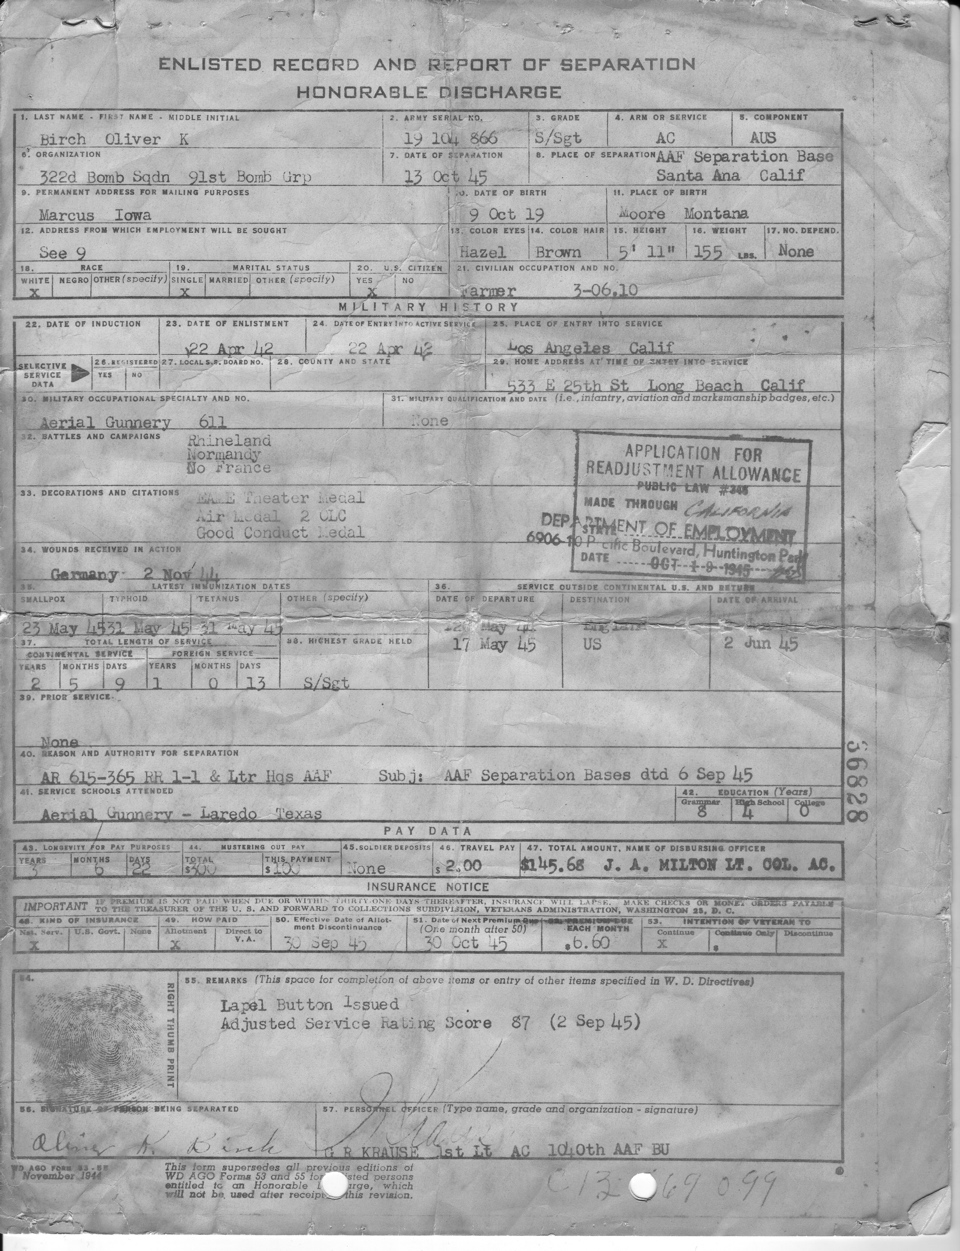 ENLISTED RECORD AND REPORT OF SEPARATION
HONORABLE DISCHARGE
1. LAST NAME - FIRST NAME - MIDDLE INITIAL
Birch Oliver K
2. ARMY SERIAL NO.
19 104 866
3. GRADE
S/Sgt
4. ARM OR SERVICE
AC
5. COMPONENT
AUS
6. ORGANIZATION
322d Bomb Sqdn 91st Bomb Grp
7. DATE OF SEPARATION
13 Oct 45
8. PLACE OF SEPARATION AAF Separation Base
Santa Ana Calif
9. PERMANENT ADDRESS FOR MAILING PURPOSES
Marcus Iowa
10. DATE OF BIRTH
9 Oct 19
11. PLACE OF BIRTH
Moore Montana
12. ADDRESS FROM WHICH EMPLOYMENT WILL BE SOUGHT
See 9
13. COLOR EYES
Hazel
14. COLOR HAIR
Brown
15. HEIGHT
5' 11"
16. WEIGHT
155 LBS.
17. NO. DEPEND.
None
18. RACE
WHITE NEGRO OTHER (specify)
X
19. MARITAL STATUS
SINGLE MARRIED OTHER (specify)
X
20. U.S. CITIZEN
YES NO
X
21. CIVILIAN OCCUPATION AND NO.
Farmer 3-06.10
MILITARY HISTORY
22. DATE OF INDUCTION
23. DATE OF ENLISTMENT
22 Apr 42
24. DATE OF ENTRY INTO ACTIVE SERVICE
22 Apr 42
25. PLACE OF ENTRY INTO SERVICE
Los Angeles Calif
SELECTIVE SERVICE DATA
26. REGISTERED
YES NO
27. LOCAL S.S. BOARD NO.
28. COUNTY AND STATE
29. HOME ADDRESS AT TIME OF ENTRY INTO SERVICE
533 E 25th St Long Beach Calif
30. MILITARY OCCUPATIONAL SPECIALTY AND NO.
Aerial Gunnery 611
31. MILITARY QUALIFICATION AND DATE (i.e., infantry, aviation and marksmanship badges, etc.)
None
32. BATTLES AND CAMPAIGNS
Rhineland
Normandy
No France
APPLICATION FOR
READJUSTMENT ALLOWANCE
PUBLIC LAW #346
MADE THROUGH CALIFORNIA
STATE
DEPARTMENT OF EMPLOYMENT
6906-10 Pacific Boulevard, Huntington Park
DATE OCT 19 1945
33. DECORATIONS AND CITATIONS
EAME Theater Medal
Air Medal 2 OLC
Good Conduct Medal
34. WOUNDS RECEIVED IN ACTION
Germany 2 Nov 44
35. LATEST IMMUNIZATION DATES
SMALLPOX TYPHOID TETANUS OTHER (specify)
23 May 45 31 May 45 31 May 45
36. SERVICE OUTSIDE CONTINENTAL U.S. AND RETURN
DATE OF DEPARTURE DESTINATION DATE OF ARRIVAL
17 May 45 US 2 Jun 45
37. TOTAL LENGTH OF SERVICE
CONTINENTAL SERVICE FOREIGN SERVICE
YEARS MONTHS DAYS YEARS MONTHS DAYS
2 5 9 1 0 13
38. HIGHEST GRADE HELD
S/Sgt
39. PRIOR SERVICE
None
40. REASON AND AUTHORITY FOR SEPARATION
AR 615-365 RR 1-1 & Ltr Hqs AAF Subj: AAF Separation Bases dtd 6 Sep 45
41. SERVICE SCHOOLS ATTENDED
Aerial Gunnery - Laredo Texas
42. EDUCATION (Years)
Grammar High School College
8 4 0
56828
PAY DATA
43. LONGEVITY FOR PAY PURPOSES
YEARS MONTHS DAYS
3 6 22
44. MUSTERING OUT PAY
TOTAL THIS PAYMENT
$300 $100
45. SOLDIER DEPOSITS
None
46. TRAVEL PAY
$2.00
47. TOTAL AMOUNT, NAME OF DISBURSING OFFICER
$145.68 J. A. MILTON LT. COL. AC.
INSURANCE NOTICE
IMPORTANT IF PREMIUM IS NOT PAID WHEN DUE OR WITHIN THIRTY-ONE DAYS THEREAFTER, INSURANCE WILL LAPSE. MAKE CHECKS OR MONEY ORDERS PAYABLE
TO THE TREASURER OF THE U. S. AND FORWARD TO COLLECTIONS SUBDIVISION, VETERANS ADMINISTRATION, WASHINGTON 25, D. C.
48. KIND OF INSURANCE
Nat. Serv. U.S. Govt. None
X
49. HOW PAID
Allotment Direct to V.A.
X
50. Effective Date of Allotment Discontinuance
30 Sep 45
51. Date of Next Premium Due (One month after 50)
30 Oct 45
EACH MONTH
6.60
53. INTENTION OF VETERAN TO
Continue Continue Only Discontinue
X
54.
RIGHT THUMB PRINT
55. REMARKS (This space for completion of above items or entry of other items specified in W. D. Directives)
Lapel Button Issued
Adjusted Service Rating Score 87 (2 Sep 45)
56. SIGNATURE OF PERSON BEING SEPARATED
Oliver K. Birch
57. PERSONNEL OFFICER (Type name, grade and organization - signature)
G R KRAUSE 1st Lt AC 1040th AAF BU
WD AGO FORM 53-55
1 November 1944
This form supersedes all previous editions of
WD AGO Forms 53 and 55 for
entitled to an Honorable
will not be used after receipt this revision.